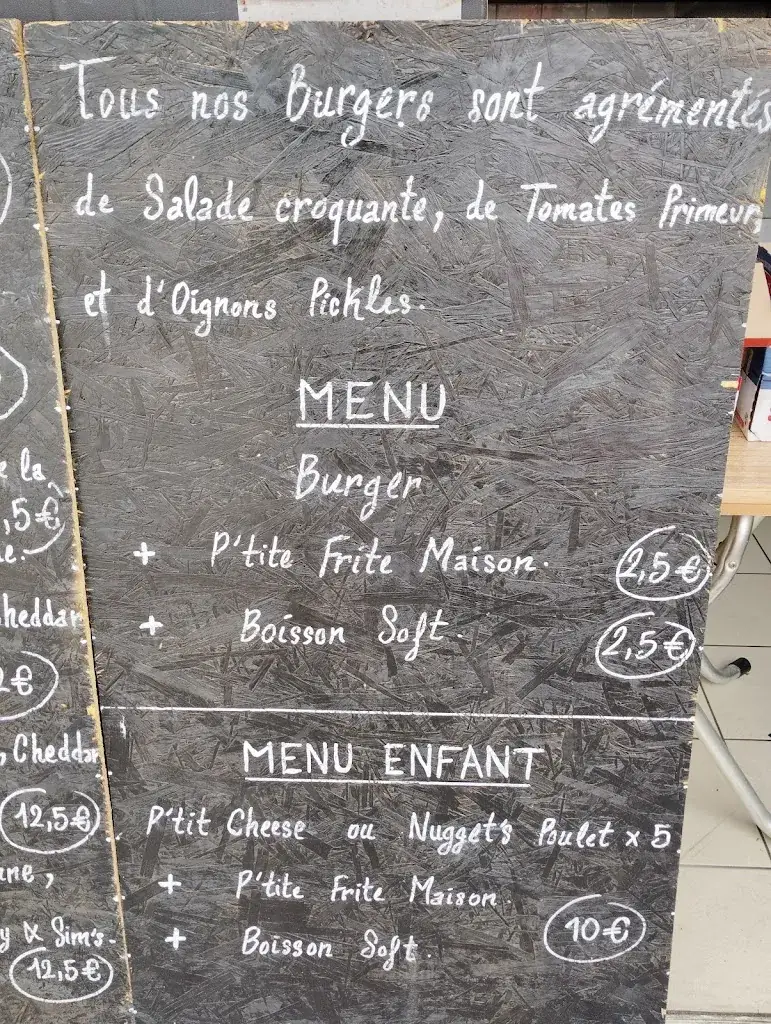 Tous nos Burgers sont agrémentés
de Salade croquante, de Tomates Primeur
et d'Oignons Pickles.
MENU
Burger
+ P'tite Frite Maison. 2,5€
+ Boisson Soft. 2,5€
MENU ENFANT
P'tit Cheese ou Nugget's Poulet x 5
+ P'tite Frite Maison.
+ Boisson Soft. 10€
la
,5€
heddar
2€
, Cheddar
12,5€
une,
y & Sim's.
12,5€